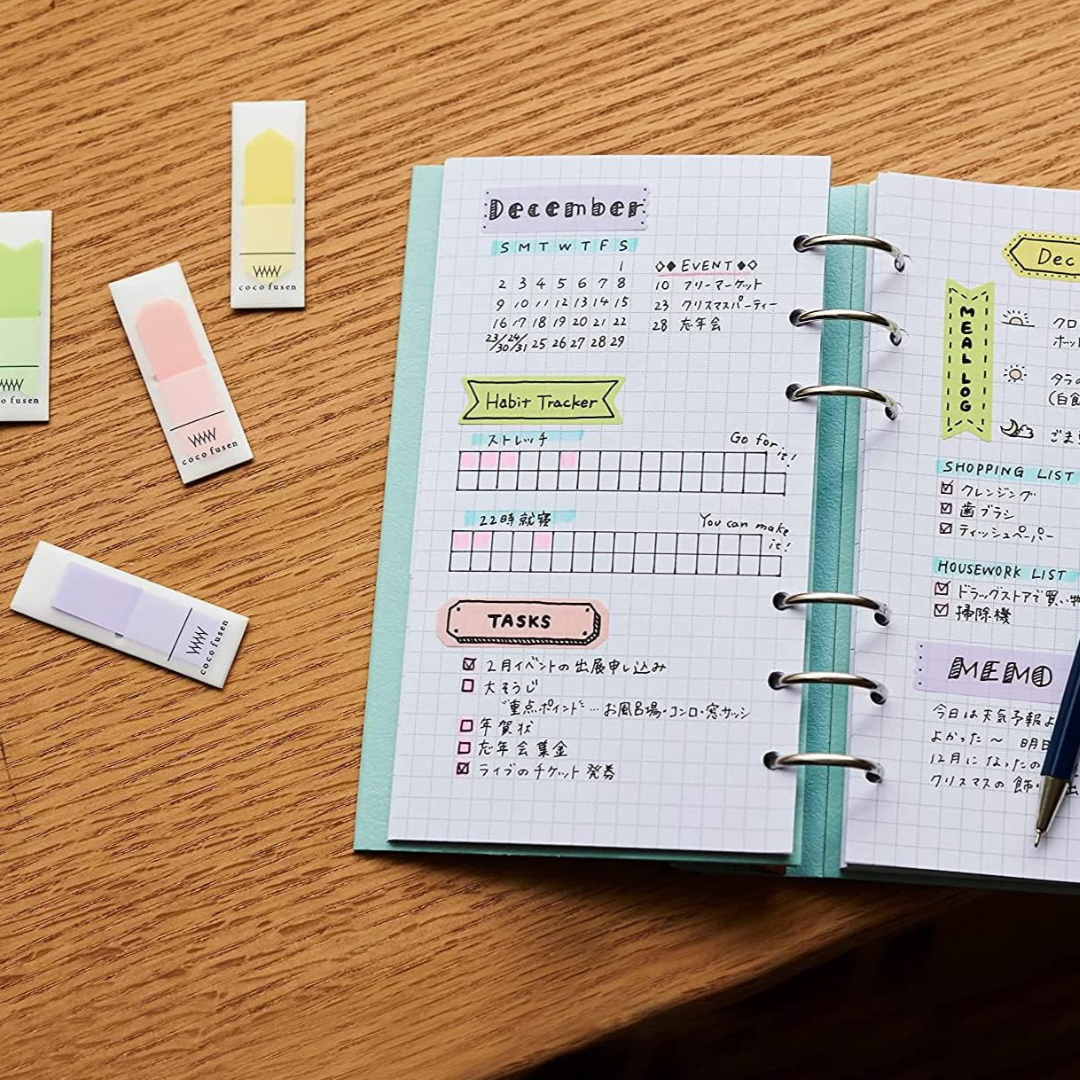 December
S M T W T F S
1
2 3 4 5 6 7 8
9 10 11 12 13 14 15
16 17 18 19 20 21 22
23/30 24/31 25 26 27 28 29
◇◆ EVENT ◆◇
10 フリーマーケット
23 クリスマスパーティー
28 忘年会
Habit Tracker
ストレッチ
Go for it!
22時就寝
You can make it!
TASKS
2月イベントの出展申し込み
大そうじ
"重点ポイント"…お風呂場・コンロ・窓サッシ
年賀状
忘年会集金
ライブのチケット発券
Dec
MEAL LOG
クロ
ホット
タラの
(白飯
ごま
SHOPPING LIST
クレンジング
歯ブラシ
ティッシュペーパー
HOUSEWORK LIST
ドラッグストアで買い物
掃除機
MEMO
今日は天気予報よ
よかった〜 明日
12月になったの
クリスマスの飾り
coco fusen
coco fusen
coco fusen
co fusen